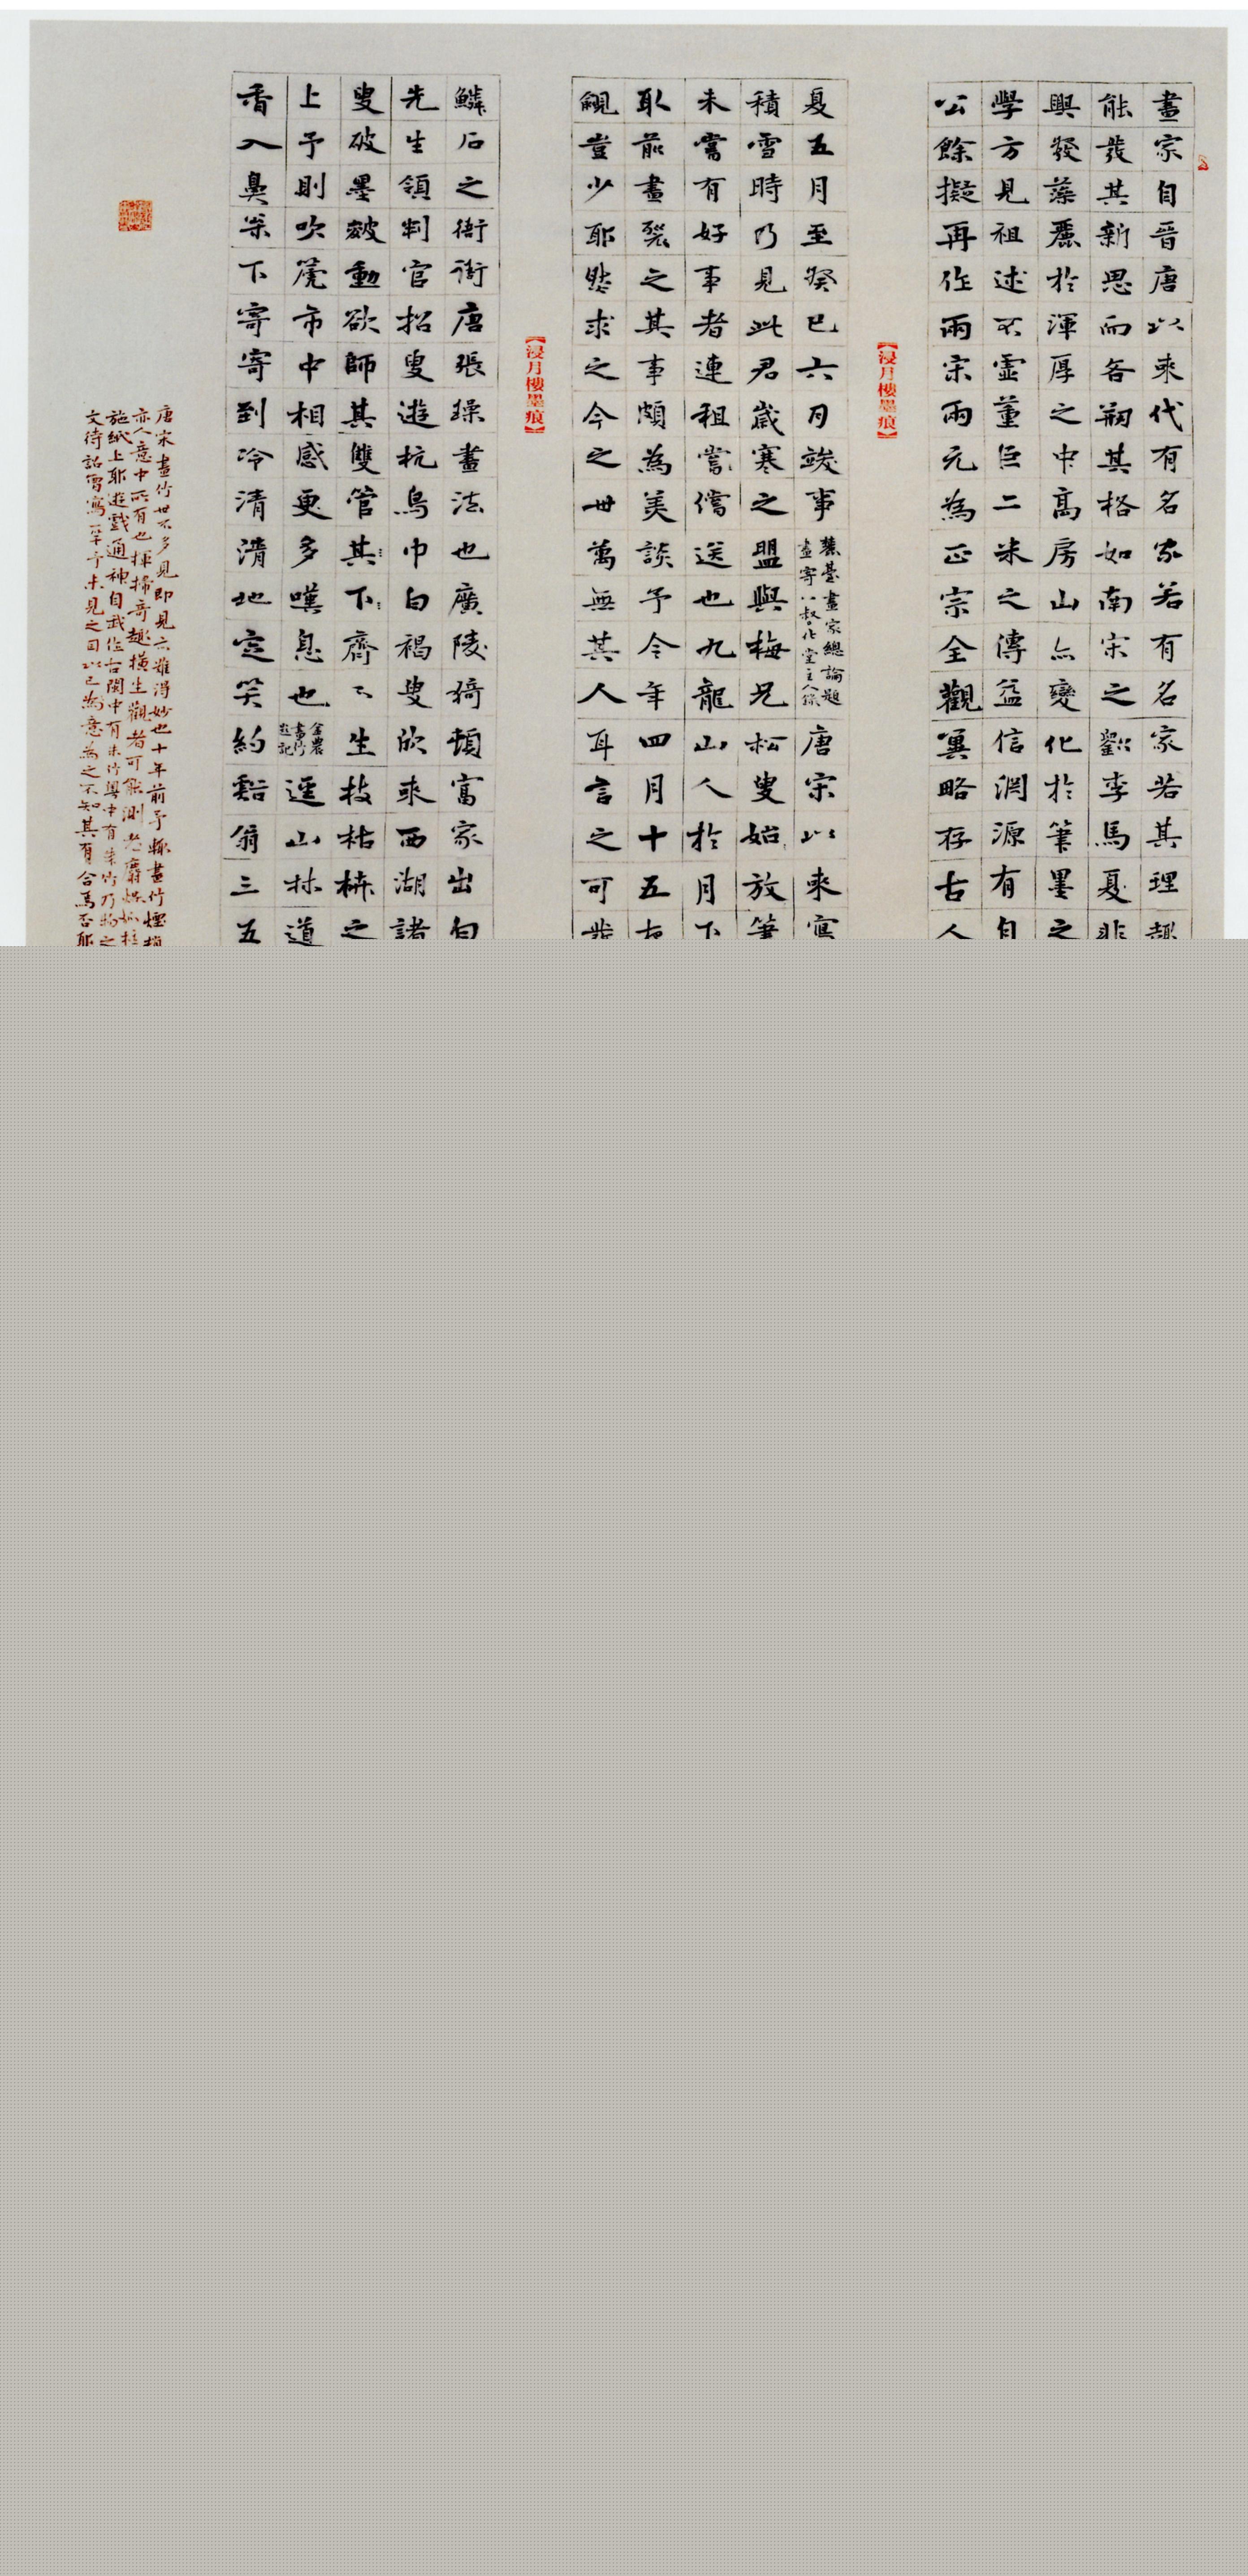 畫家自晉唐以來代有名家若有名家若其理趣
能發其新思而各拗其格如南宋之劉李馬夏非
興發藻麗於渾厚之中高房山亦變化於筆墨之
學方見祖述不虛董巨二米之傳益信淵源有自
公餘擬再作兩宋兩元為正宗全觀冥略存古人
【浸月樓墨痕】
夏五月至癸巳六月竣事
麓臺畫家總論題
畫寄
唐宋以來寫
積雪時乃見此君歲寒之盟與梅兄松叟始放筆
未嘗有好事者連租嘗償送也九龍山人於月下
取前畫裂之其事頗為美談予今年四月十五夜
覥豈少耶然求之今之世萬無其人耳言之可發
【浸月樓墨痕】
鱗石之街衖唐張璪畫法也廣陵猗頓富家出白
先生領判官招叟遊杭烏巾白褐叟欣來西湖諸
叟破墨皴動欲師其雙管其下齊下生枝枯枿之
上予則吹篪市中相感更多嘆息也
金農
畫竹
題記
逕山林道
香入鼻朵下寄寄到冷清清地定笑約谿翁三五
唐宋畫竹世不多見即見亦難得妙也十年前予輒畫竹煙梢
亦人意中所有也揮掃奇趣橫生觀者可能測老麝煤
施紙上耶遊戲通神自我作古閩中有朱竹粵中有朱竹乃物之
文待詔曾寫一竿予未見之因以己意為之不知其有合焉否耶